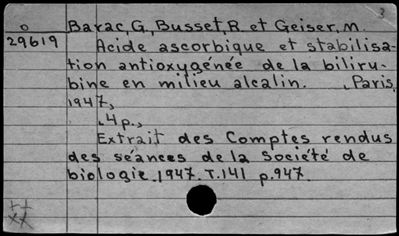 3
o
29619
Barac, G., Busset, R. et Geiser, M.
Acide ascorbique et stabilisa-
tion antioxygénée de la biliru-
bine en milieu alcalin. Paris,
1947,
4 p.,
Extrait des Comptes rendus
des séances de la Société de
biologie. 1947. T.141 p.947.
++
xx